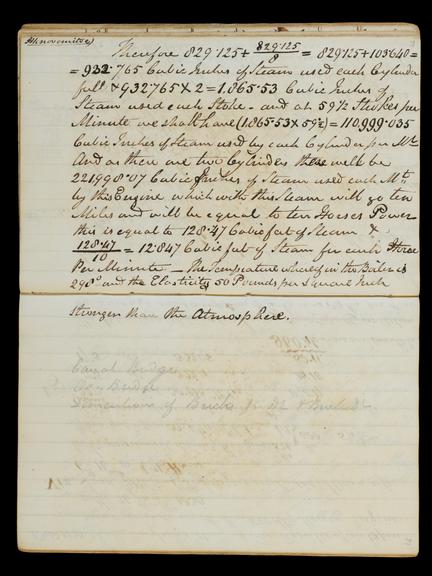 Therefore 829·125 + 829·125/8 = 829·125 + 103·640 =
= 932·765 Cubic Inches of Steam used each Cylinder
full & 932·765 X 2 = 1.865·53 Cubic Inches of
Steam used each Stroke - and at 59½ Strokes per
Minute we shall have (1.865·53 X 59½) = 110,999·035
Cubic Inches of Steam used by each Cylinder per Mte
And as there are two Cylinders there will be
221998·07 Cubic Inches of Steam used each Mte
by this Engine which with this Steam will go ten
Miles and will be equal to ten Horses Power
this is equal to 128·47 Cubic feet of Steam &
128·47/10 = 12·847 Cubic feet of Steam for each Horse
Per Minute — The Temperature whereof in the Boiler is
298° and the Elasticity 50 Pounds per Square Inch
Stronger than the Atmosphere.
Canal Bridge
Bridge
Dimentions of Bricks